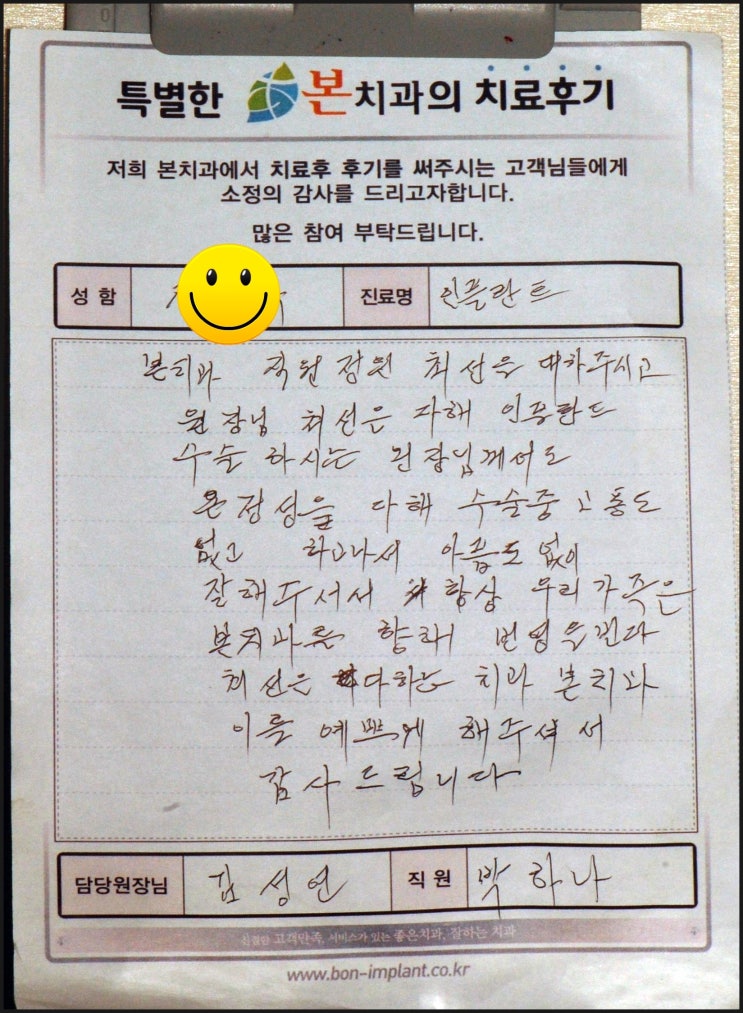 특별한 본치과의 치료후기
저희 본치과에서 치료후 후기를 써주시는 고객님들에게
소정의 감사를 드리고자합니다.
많은 참여 부탁드립니다.
성 함 진료명 인플란트
본치과 직원 최선을 대하주시고
원장님 최선은 다해 인플란트
수술 하시는 원장님께서도
온정성을 다해 수술중 고통도
없고 하고나서 아픔도 없이
잘해주서서 항상 우리가족은
본치과를 향해 번영을
최선은 다하는 치과 본치과
이를 예쁘게 해주셔서
감사드립니다
담당원장님 김성언 직 원 박하나
친절한 고객만족, 서비스가 있는 좋은치과, 잘하는 치과
www.bon-implant.co.kr